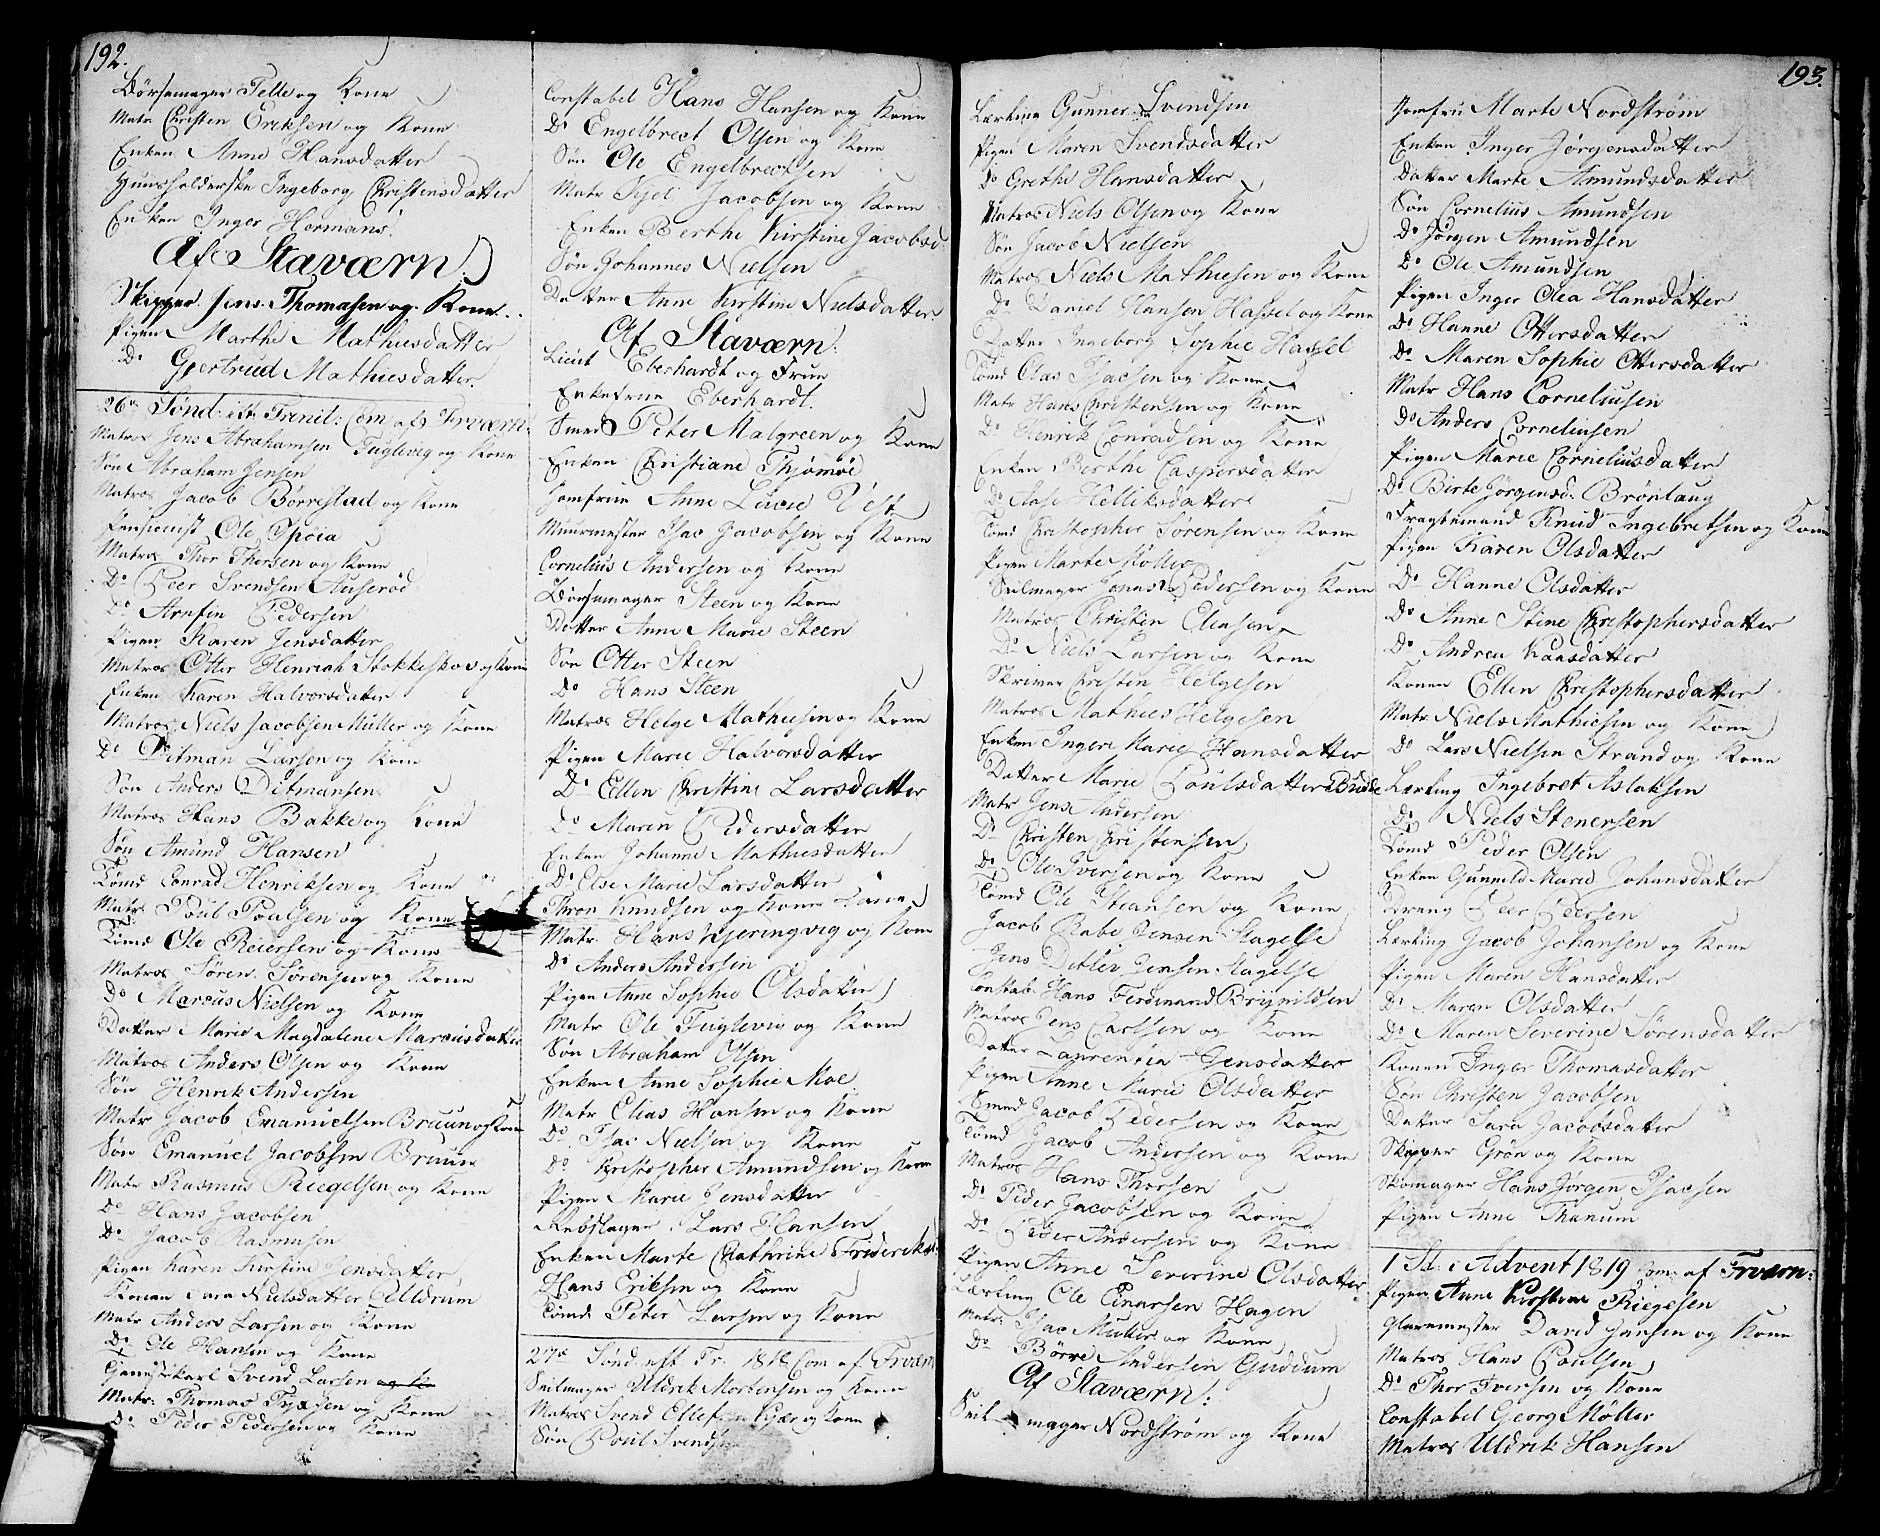 192.
Børsemager Telle og Kone
Matr Christen Eriksen og Kone
Enken Anne Hansdatter
Huusholderske Ingeborg Christensdatter
Enken Inger Hermans:
Af Staværn:
Skipper Jens Thomasen og Kone
Pigen Marthe Mathiesdatter
Do Gjertrud Mathiesdatter
26de Sønd: eft: Trinit: Com: af Frværn:
Matros Jens Abrahamsen Fuglevig og Kone
Søn Abraham Jensen
Matros Jacob Børrestad og Kone
Pensionist Ole
Matros Thor Thorsen og Kone
Do Peer Svendsen Auserød
Do Arnfin Pedersen
Pigen Karen Jensdatter
Matros Otter Henrich Stokkeskov og Kone
Enken Karen Halvorsdatter
Matros Niels Jacobsen Müller og Kone
Do Ditman Larsen og Kone
Søn Anders Ditmansen
Matros Hans Bakke og Kone
Søn Amund Hansen
Tømd Conrad Henriksen og Kone
Matr Poul Poulsen og Kone
Tømd Ole Reiersen og Kone
Matros Søren Sørensen og Kone
Do Marcus Nielsen og Kone
Datter Marie Magdalene Marcusdatter
Matros Anders Olsen og Kone
Søn Henrik Andersen
Matr Jacob Emanuelsen Bruun og Kone
Søn Emanuel Jacobsen Bruun
Matr Rasmus Riegelsen og Kone
Do Hans Jacobsen
Do Jacob Rasmusen
Pigen Karen Kirstine Jensdatter
Konen Sara Nielsdatter Uldrum
Matr Anders Larsen og Kone
Do Ole Hansen og Kone
Svend Larsen
Matr: Thomas og Kone
Do Peder Pedersen og Kone
Constabel Hans Hansen og Kone
Do Engelbrect Olsen og Kone
Søn Ole Engelbrectsen
Matr Kjel Jacobsen og Kone
Enken Berthe Kirstine Jacobsd
Søn Johannes Nielsen
Datter Anne Kirstine Nielsdatter
Af Staværn:
Lieut Eberhardt og Frue
Enkefrue Eberhardt
Smed Peter Malgreen og Kone
Enken Christiane Thømøe
Jomfrue Anne Lucie Vest
Muurmester Isac Jacobsen og Kone
Cornelius Andersen og Kone
Børsemager Steen og Kone
Datter Anne Marie Steen
Søn Otter Steen
Do Hans Steen
Matros Helge Mathiesen og Kone
Pigen Marie Halvorsdatter
Do Ellen Christine Larsdatter
Do Maren Pedersdatter
Enken Johanne Mathiesdatter
Do Else Marie Larsdatter
Thron Knudsen og Kone
Matr Hans Kjeringvig og Kone
Do Anders Andersen
Pigen Anne Sophie Olsdatter
Matr Ole Fuglevig og Kone
Søn Abraham Olsen
Enken Anne Sophie Moe
Matr Elias Hansen og Kone
Do Isac Nielsen og Kone
Do Christopher Amundsen og Kone
Pigen Marie Jensdatter
Rebslager Lars Hansen
Enken Marte Cathrine Friderichsd:
Hans Eriksen og Kone
Tømd Peter Larsen og Kone
27de Sønd. eft Tr. 1818 Com af Frværn
Seilmager Uldrik Mortensen og Kone
Matros Svend Ellefsen Kjær og Kone
Søn Poul Svendsen
193.
Lærling Gunner Svendsen
Pigen Maren Svendsdatter
Do Grethe Hansdatter
Matros Niels Olsen og Kone
Søn Jacob Nielsen
Matros Niels Mathiesen og Kone
Do Daniel Hansen Hassel og Kone
Datter Ingeborg Sophie Hassel
Tømd Clas Isacsen og Kone
Matr Hans Christensen og Kone
Do Henrik Conradsen og Kone
Enken Berthe Caspersdatter
Do Aase Kelliksdatter
Tømd Christopher Sørensen og Kone
Pigen Marte Møller
Seilmager Jonas Pedersen og Kone
Matros Christen Eliasen
Do Niels Larsen og Kone
Skriver Christen Helgesen
Matros Mathies Helgesen
Enken Inger Marie Hansdatter
Datter Marie Poulsdatter Budde
Matr Jens Andersen
Do Christen Christensen
Do Ole Iversen og Kone
Tømd Ole Steansen og Kone
Jacob Rabe Jensen Slagelse
Jens Ditlev Jensen Slagelse
Constab: Hans Ferdinand Brynildsen
Matros Jens Carlsen og Kone
Datter Laurentia Jensdatter
Pigen Anne Marie Olsdatter
Smed Jacob Pedersen og Kone
Tømd Jacob Andersen og Kone
Matros Hans Thorsen
Do Peder Jacobsen og Kone
Do Peder Andersen og Kone
Pigen Anne Severine Olsdatter
Lærling Ole Einarsen Hagen
Matr: Isac og Kone
Do Børre Andersen Guddum
Af Staværn:
Seilmager Nordstrøm og Kone
Jomfru Marte Nordstrøm
Enken Inger Jørgensdatter
Datter Marte Amundsdatter
Søn Cornelius Amundsen
Do Jørgen Amundsen
Do Ole Amundsen
Pigen Inger Olea Hansdatter
Do Hanne Ottersdatter
Do Maren Sophie Ottersdatter
Matr Hans Corneliusen
Do Anders Corneliusen
Pigen Marie Corneliusdatter
Do Birte Jørgensd: Brønlaug
Fragtemand Knud Ingebretsen og Kone
Pigen Karen Olsdatter
Do Hanne Olsdatter
Do Anne Stine Christophersdatter
Do Andrea Hansdatter
Konen Ellen Christophersdatter
Matr Niels Mathiesen og Kone
Do Lars Nielsen Strand og Kone
Lærling Ingebret Aslaksen
Do Niels Stenersen
Tømd Peder Olsen
Enken Gunnild Marie Johansdatter
Dreng Peer Peersen
Lærling Jacob Johansen og Kone
Pigen Maren Hansdatter
Do Maren Olsdatter
Do Maren Severine Sørensdatter
Konen Inger Thomasdatter
Søn Christen Jacobsen
Datter Sara Jacobsdatter
Skipper Grøn og Kone
Skomager Hans Jørgen Isacsen
Pigen Anne Thanum
1 Sd: i Advent 1819 Com: af Frværn:
Pigen Anne Kirstine Riegelsen
Glarmester David Jansen og Kone
Matros Hans Poulsen
Do Thor Iversen og Kone
Constabel Georg Møller
Matros Uldrik Hansen